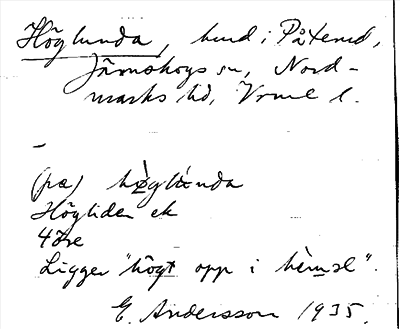 Höglunda, hmd i Påterud,
Järnskogs sn, Nord-
marks hd, Vrml l.
–
(pæ) hø̀glúnda
Högliden ek
43re
Ligger "högt opp i hèməl".
E. Andersson 1935.